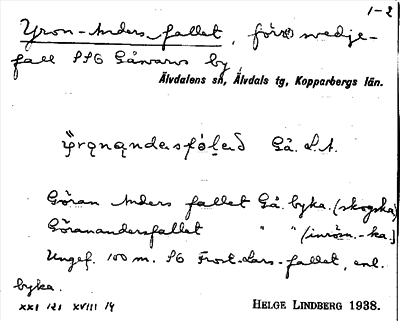 1-2
Yron-Anders-fallet, förr svedje-
fall SSO Gåsvarvs by,
Älvdalens sn, Älvdals tg, Kopparbergs län.
Gå. L.A.
Göran Anders fallet Gå. byka. (skogska)
Göranandersfallet " " (inröm.-ka.)
Ungef. 100 m. SO Frost-Lars-fallet, enl.
byka.
XXI 121 XVIII 14
HELGE LINDBERG 1938.